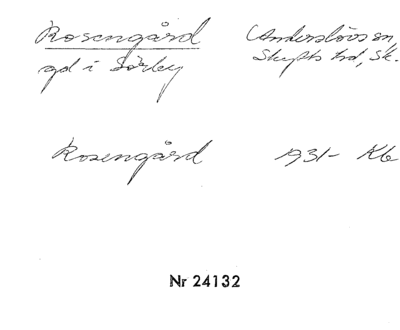 Rosengård Anderslövs sn,
gd i Sörby Skytts hd, Sk.
Rosengård 1931- Kb
Nr 24132